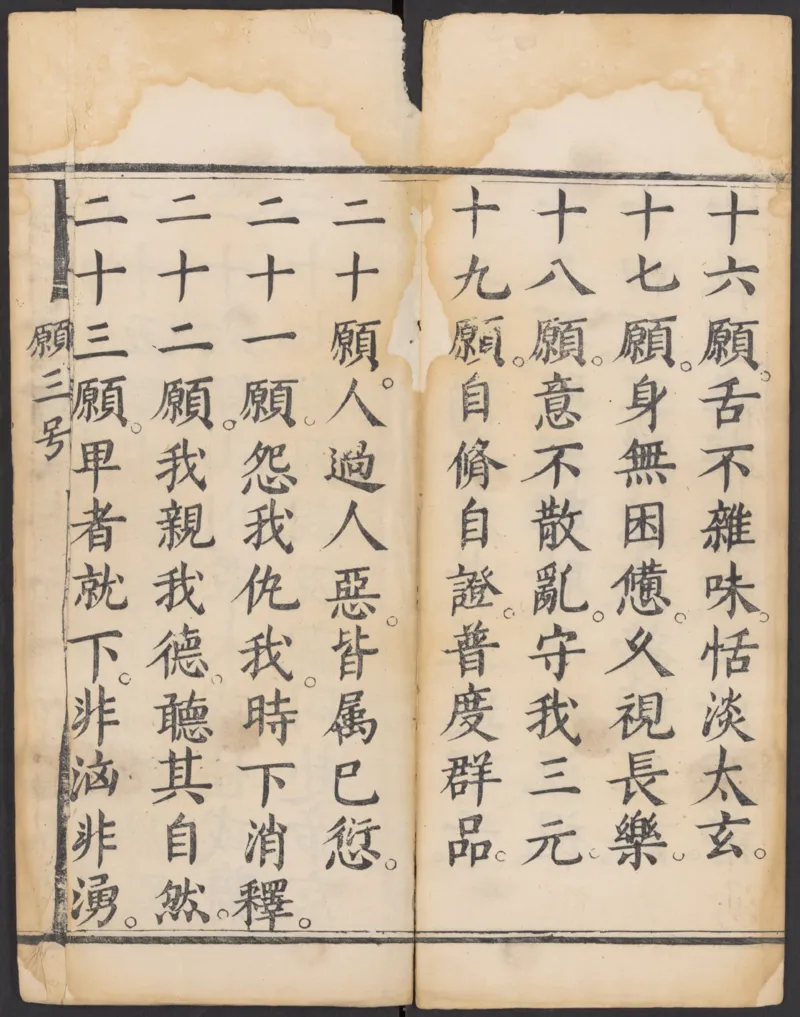 十六願。舌不雜味。恬淡太玄。
十七願。身無困憊。久視長樂。
十八願。意不散亂。守我三元。
十九願。自脩自證。普度群品。
二十願。人過人惡。皆属已愆。
二十一願。怨我仇我。時下消釋。
二十二願。我親我德。聽其自然。
二十三願。甲者就下。非汹非湧。
願三号